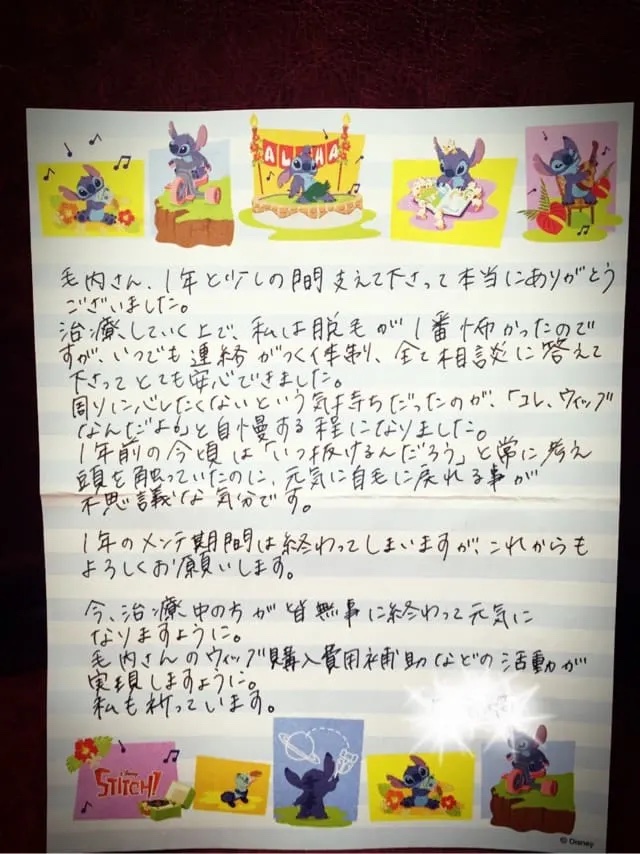 ALOHA
毛内さん、1年と少しの間支えて下さって本当にありがとう
ございました。
治療していく上で、私は脱毛が1番怖かったので
すが、いつでも連絡がつく体制、全て相談に答えて
下さってとても安心できました。
周りに心したくないという気持ちだったのが、「コレ、ウィッグ
なんだよ。」と自慢する程になりました。
1年前の今頃は「いつ抜けるんだろう」と常に考え
頭を触っていたのに、元気に自毛に戻れる事が
不思議な気分です。
1年のメンテ期間は終わってしまいますが、これからも
よろしくお願いします。
今、治療中の方が皆無事に終わって元気に
なりますように。
毛内さんのウィッグ購入費用補助などの活動が
実現しますように。
私も祈っています。
Disney
STITCH!
© Disney